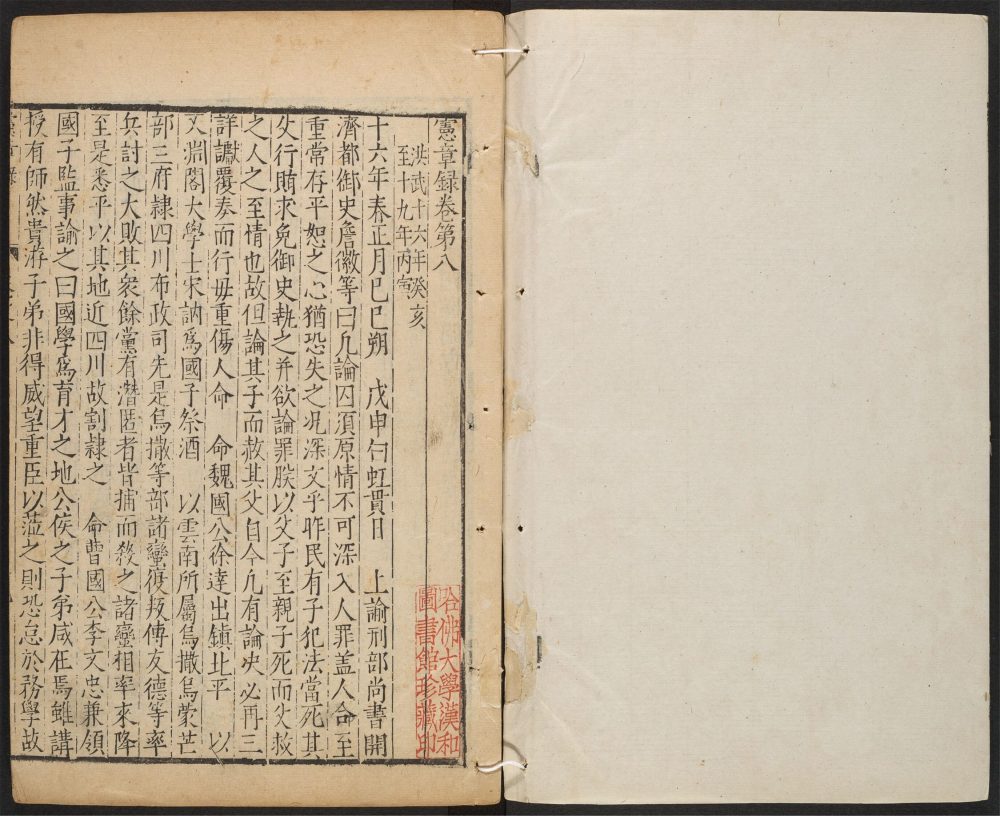 憲章録卷第八
洪武十六年癸亥
至十九年丙寅
十六年春正月已巳朔　戊申白虹貫日　上諭刑部尚書開
濟都御史詹徽等曰凡論囚須原情不可深入人罪盖人命至
重常存平恕之心猶恐失之况深文乎昨民有子犯法當死其
父行賄求免御史執之并欲論罪朕以父子至親子死而父救
之人之至情也故但論其子而赦其父自今凡有論决必再三
詳讞覆奏而行毋重傷人命　命魏國公徐達出鎮北平　以
文淵閣大學士宋訥爲國子祭酒　以雲南所屬烏撒烏蒙芒
部三府隸四川布政司先是烏撒等部諸蠻復叛傅友德等率
兵討之大敗其衆餘黨有潛匿者皆捕而殺之諸蠻相率來降
至是悉平以其地近四川故割隸之　命曹國公李文忠兼領
國子監事諭之曰國學爲育才之地公侯之子弟咸在焉雖講
授有師然貴游子弟非得威望重臣以蒞之則恐怠於務學故
哈佛大學漢和
圖書館珍藏印